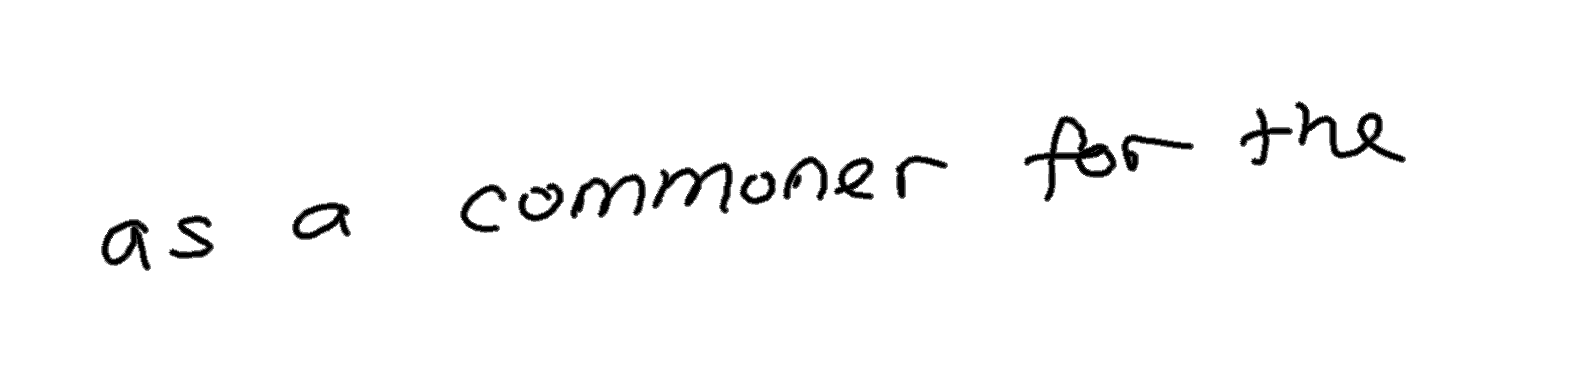 as a commoner for the